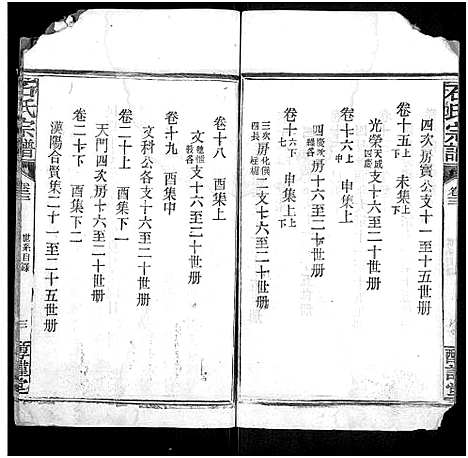 石氏宗譜
卷三
四次房賓公支十一至十五世册
卷十五上下 未集上下
光榮天成國慶支十六至二十世册
卷十六上中 申集上中
四慶次房各支十六至二十世册
卷十七下 申集下
三次房化俊酉長二支十六至二十世册
卷十八 酉集上
文魁殷各支十六至二十世册
卷十九 酉集中
文科公各支十六至二十世册
卷二十上 酉集下一
天門四次房十六至二十世册
卷二十下 酉集下二
漢陽合賓集二十一至二十五世册
石氏宗譜
卷三
世系目錄
三